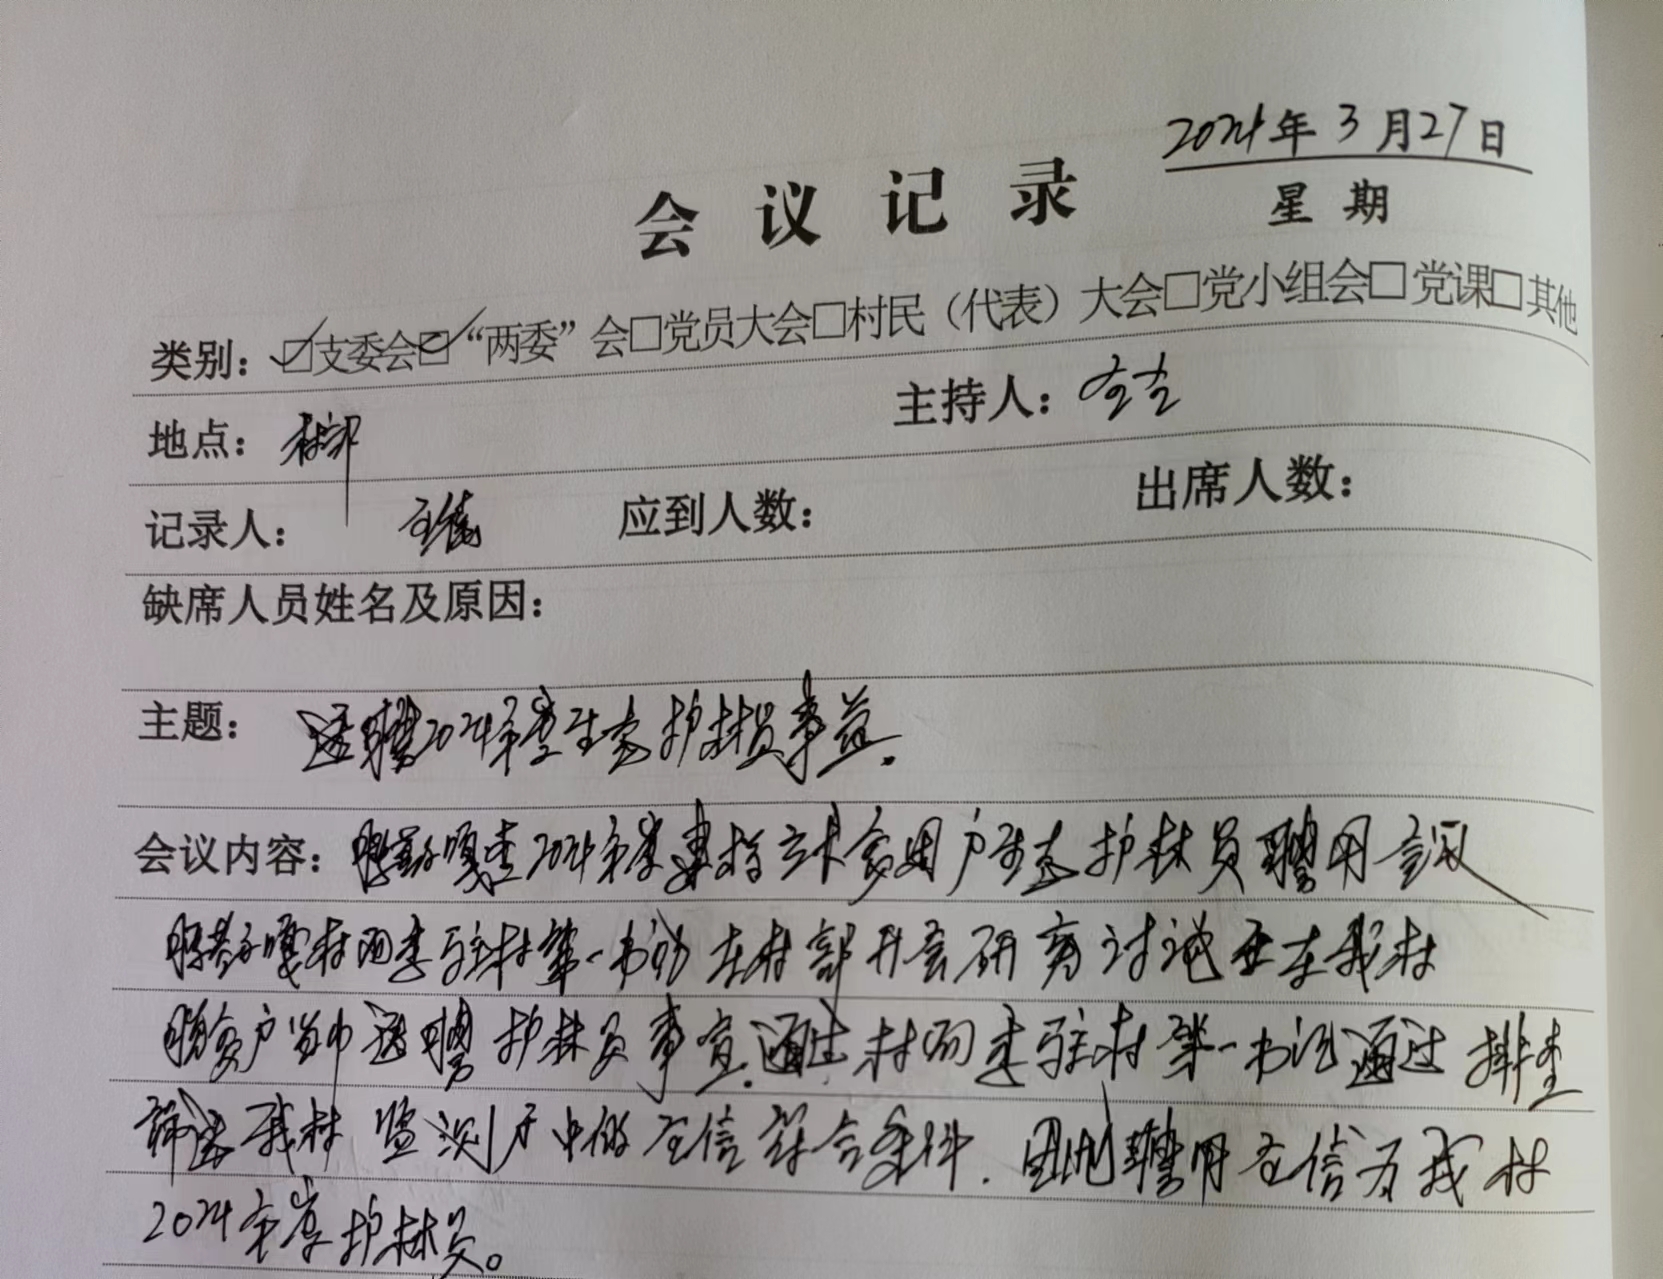 2024年3月27日
会议记录
星期
类别：☑支委会☑“两委”会□党员大会□村民（代表）大会□党小组会□党课□其他
地点：村部
主持人：
记录人：
应到人数：
出席人数：
缺席人员姓名及原因：
主题：选聘2024年度生态护林员事益.
会议内容：嘎查2024年度建档立卡贫困户生态护林员聘用会议
嘎村两委驻村第一书记在村部开会研究讨论并在我村
脱贫户当中选聘护林员事宜.通过村两委驻村第一书记通过排查
筛选我村监测户中的 信符合条件.因此聘用 信为我村
2024年度护林员。